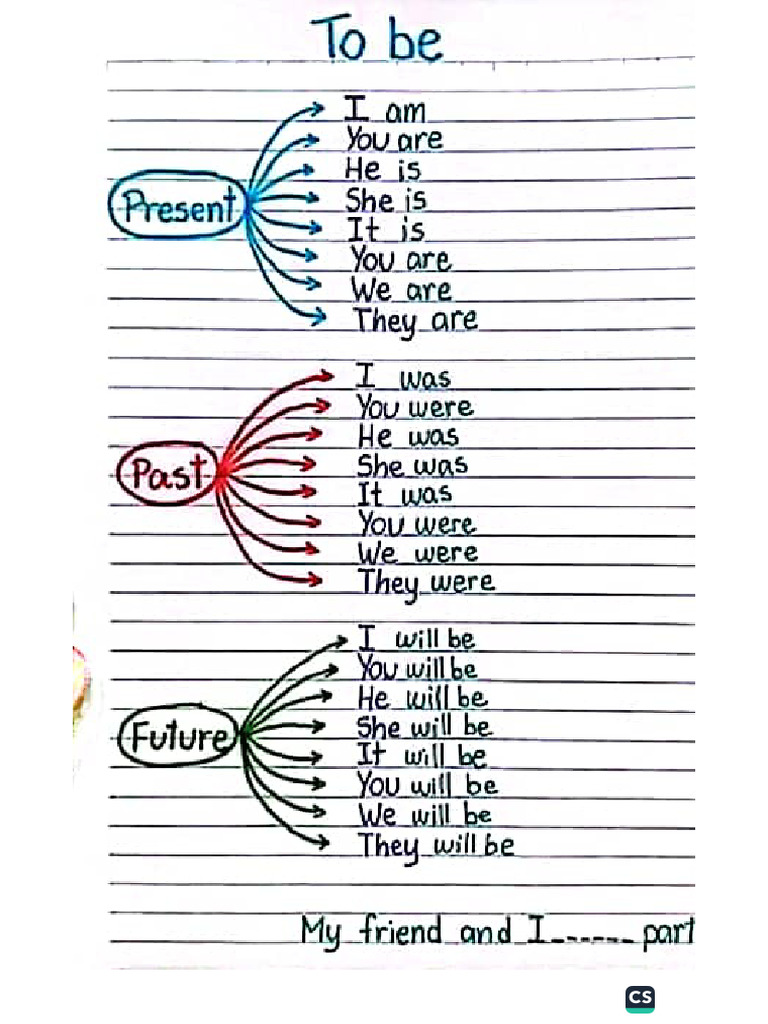 To be
Present
I am
You are
He is
She is
It is
You are
We are
They are
Past
I was
You were
He was
She was
It was
You were
We were
They were
Future
I will be
You will be
He will be
She will be
It will be
You will be
We will be
They will be
My friend and I ------ part
CS